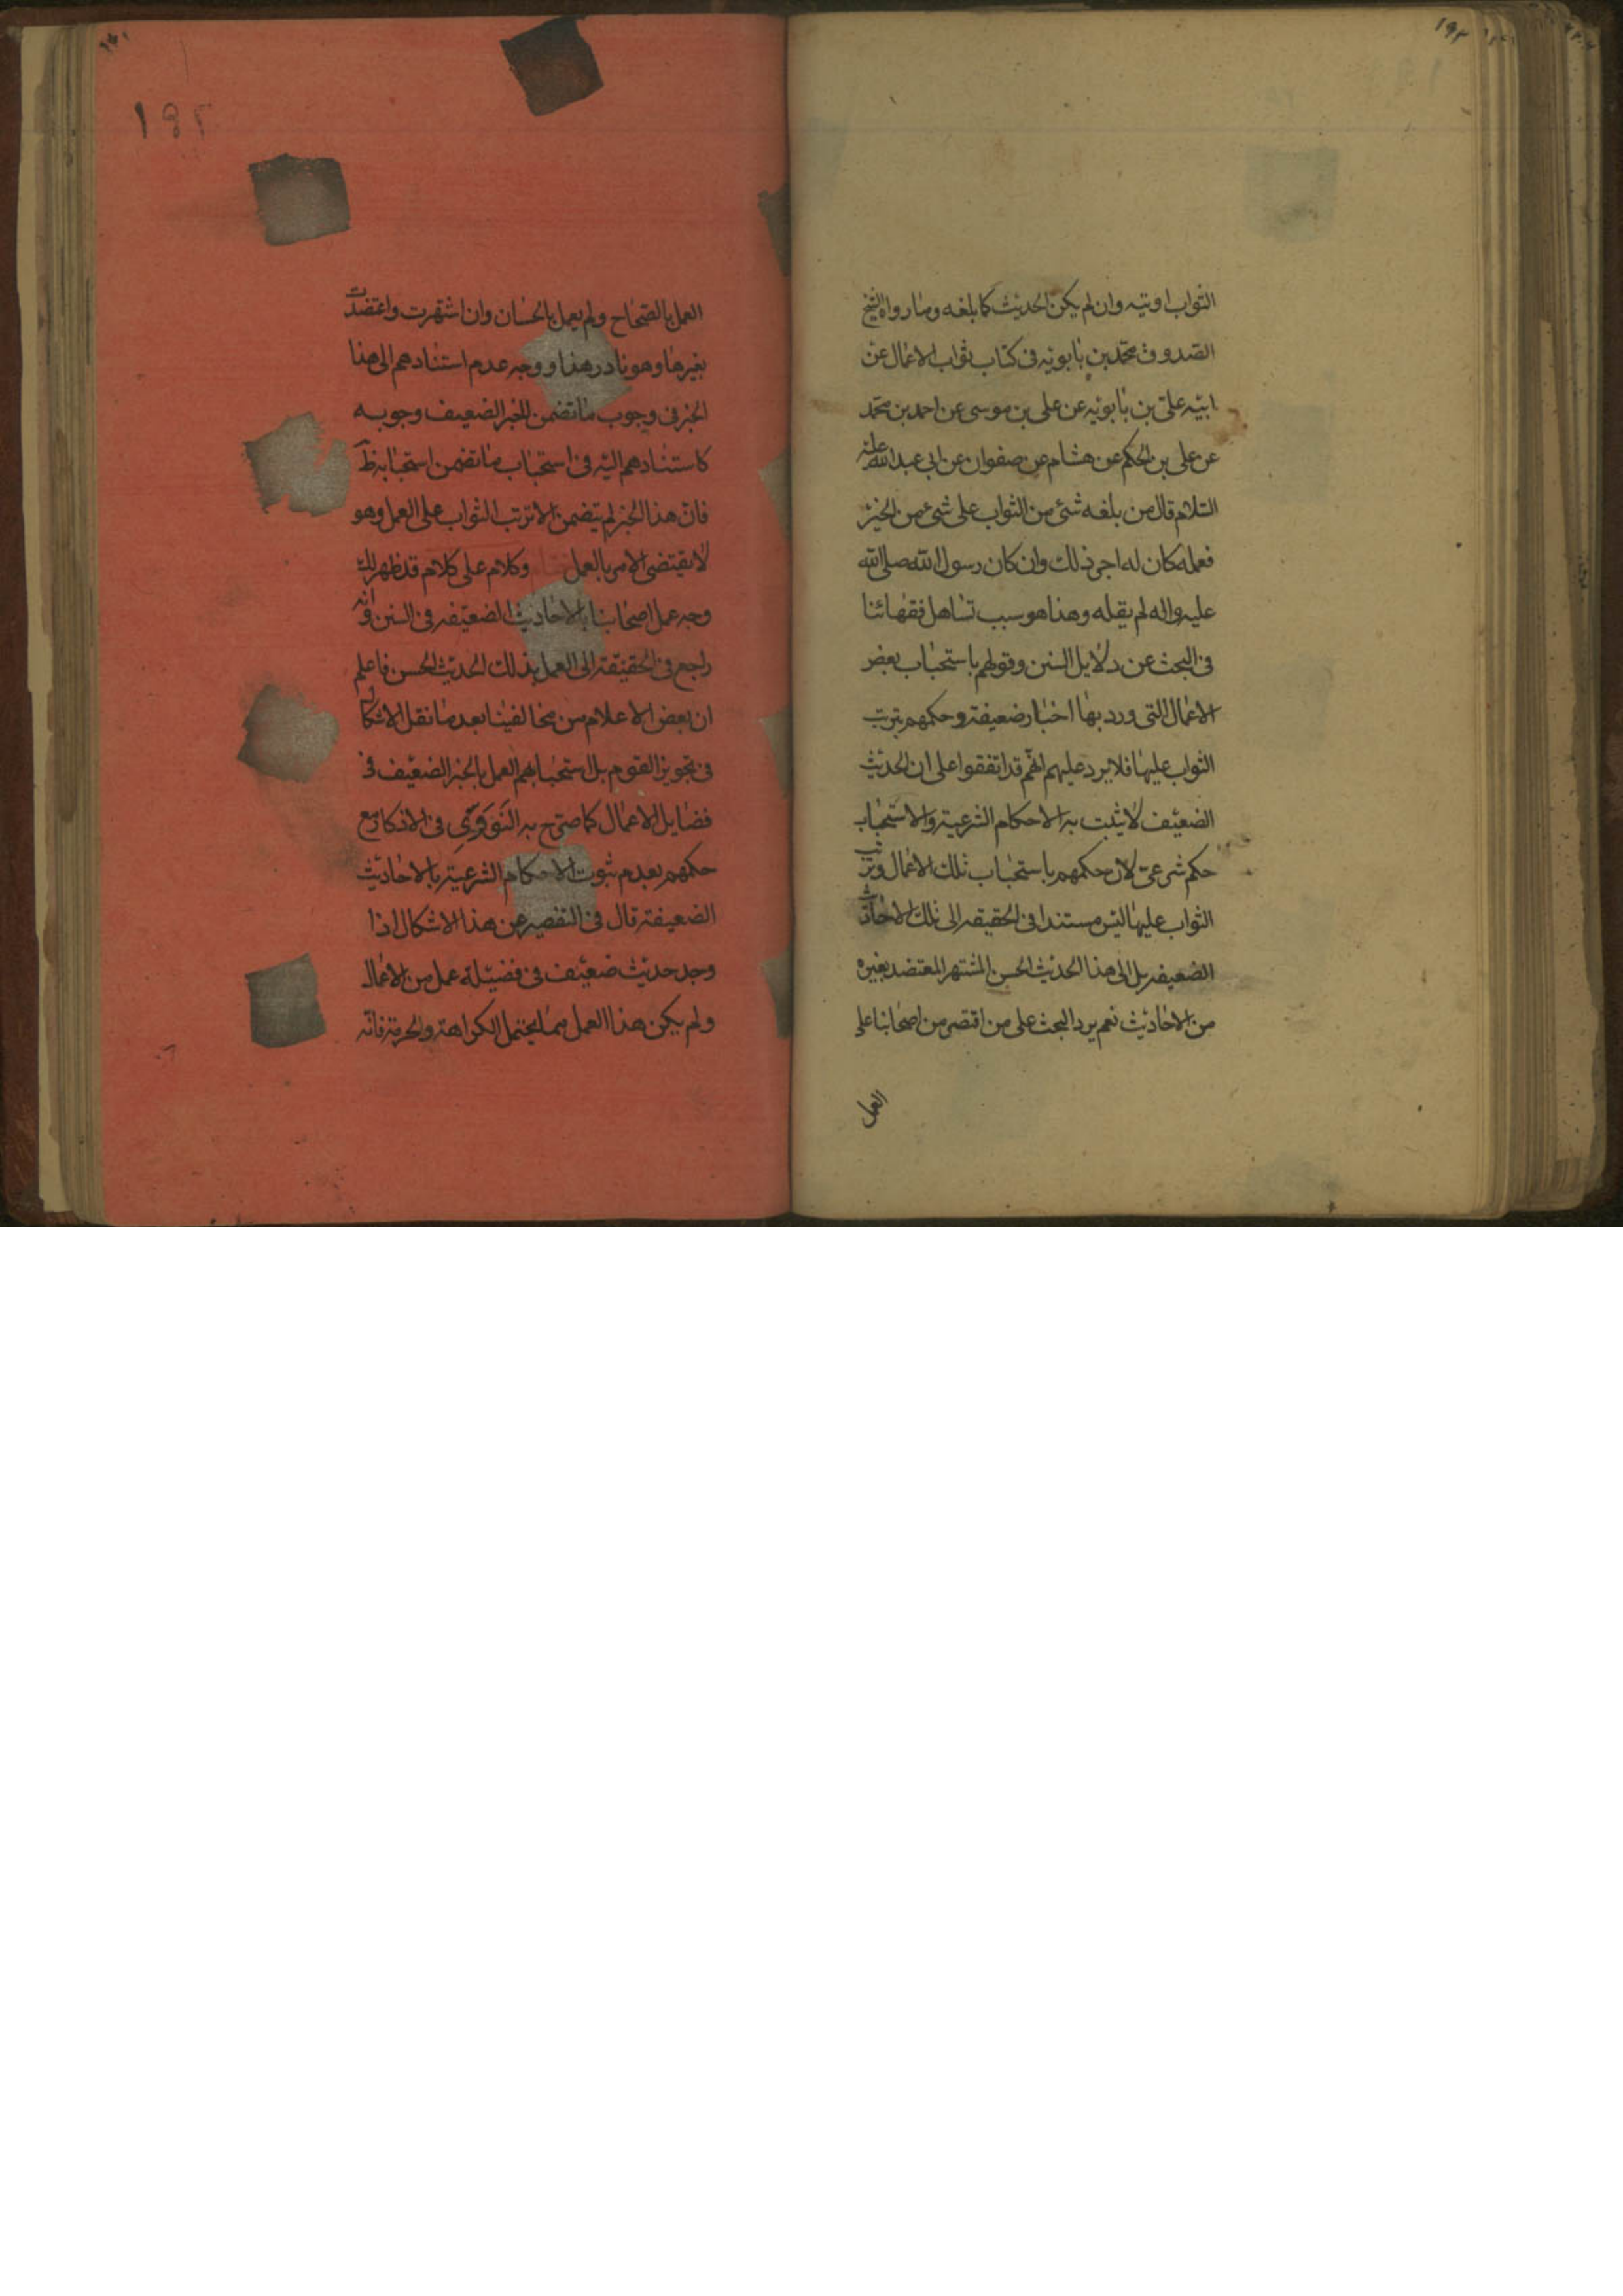 ١٩٢
الثواب اوتيه وان لم يكن الحديث كما بلغه وما رواه الشيخ
الصدوق محمد بن بابويه فى كتاب ثواب الاعمال عن
ابيه على بن بابويه عن على بن موسى عن احمد بن محمد
عن على بن الحكم عن هشام عن صفوان عن ابى عبد الله عليه
السلام قال من بلغه شئ من الثواب على شئ من الخير
فعمله كان له اجر ذلك وان كان رسول الله صلى الله
عليه واله لم يقله وهذا هو سبب تساهل فقهائنا
فى البحث عن دلايل السنن وقولهم باستحباب بعض
الاعمال التى ورد بها اخبار ضعيفة وحكمهم بترتب
الثواب عليها فلا يرد عليهم انهم قد اتفقوا على ان الحديث
الضعيف لا يثبت به الاحكام الشرعية والاستحباب
حكم شرعى لان حكمهم باستحباب تلك الاعمال وترتب
الثواب عليها ليس مستندا فى الحقيقه الى تلك الاحاديث
الضعيفه بل الى هذا الحديث الحسن المشتهر المعتضد بغيره
من الاحاديث نعم يرد البحث على من اقتصر من اصحابنا على
العمل
١٩٢
العمل بالصحاح ولم يعمل بالحسان وان اشتهرت واعتضدت
بغيرها وهو نادر هذا و وجه عدم استنادهم الى هذا
الخبر فى وجوب ما تضمن الخبر الضعيف وجوبه
كاستنادهم اليه فى استحباب ما تضمن استحبابه ظ
فان هذا الخبر لم يتضمن الا ترتب الثواب على العمل وهو
لا يقتضى الامر بالعمل وكلام على كلام قد ظهر لك
وجه عمل اصحابنا بالاحاديث الضعيفه فى السنن وانه
راجع فى الحقيقة الى العمل بذلك الحديث الحسن فاعلم
ان بعض الاعلام من مخالفينا بعد ما نقل الاشكال
فى تجويز القوم بل استحبابهم العمل بالخبر الضعيف فى
فضايل الاعمال كما صرّح به النَووَى فى الاذكار مع
حكمهم بعدم ثبوت الاحكام الشرعية بالاحاديث
الضعيفة قال فى التفصى عن هذا الاشكال اذا
وجد حديث ضعيف فى فضيلة عمل من الاعمال
ولم يكن هذا العمل مما يحتمل الكراهة والحرمة فانه